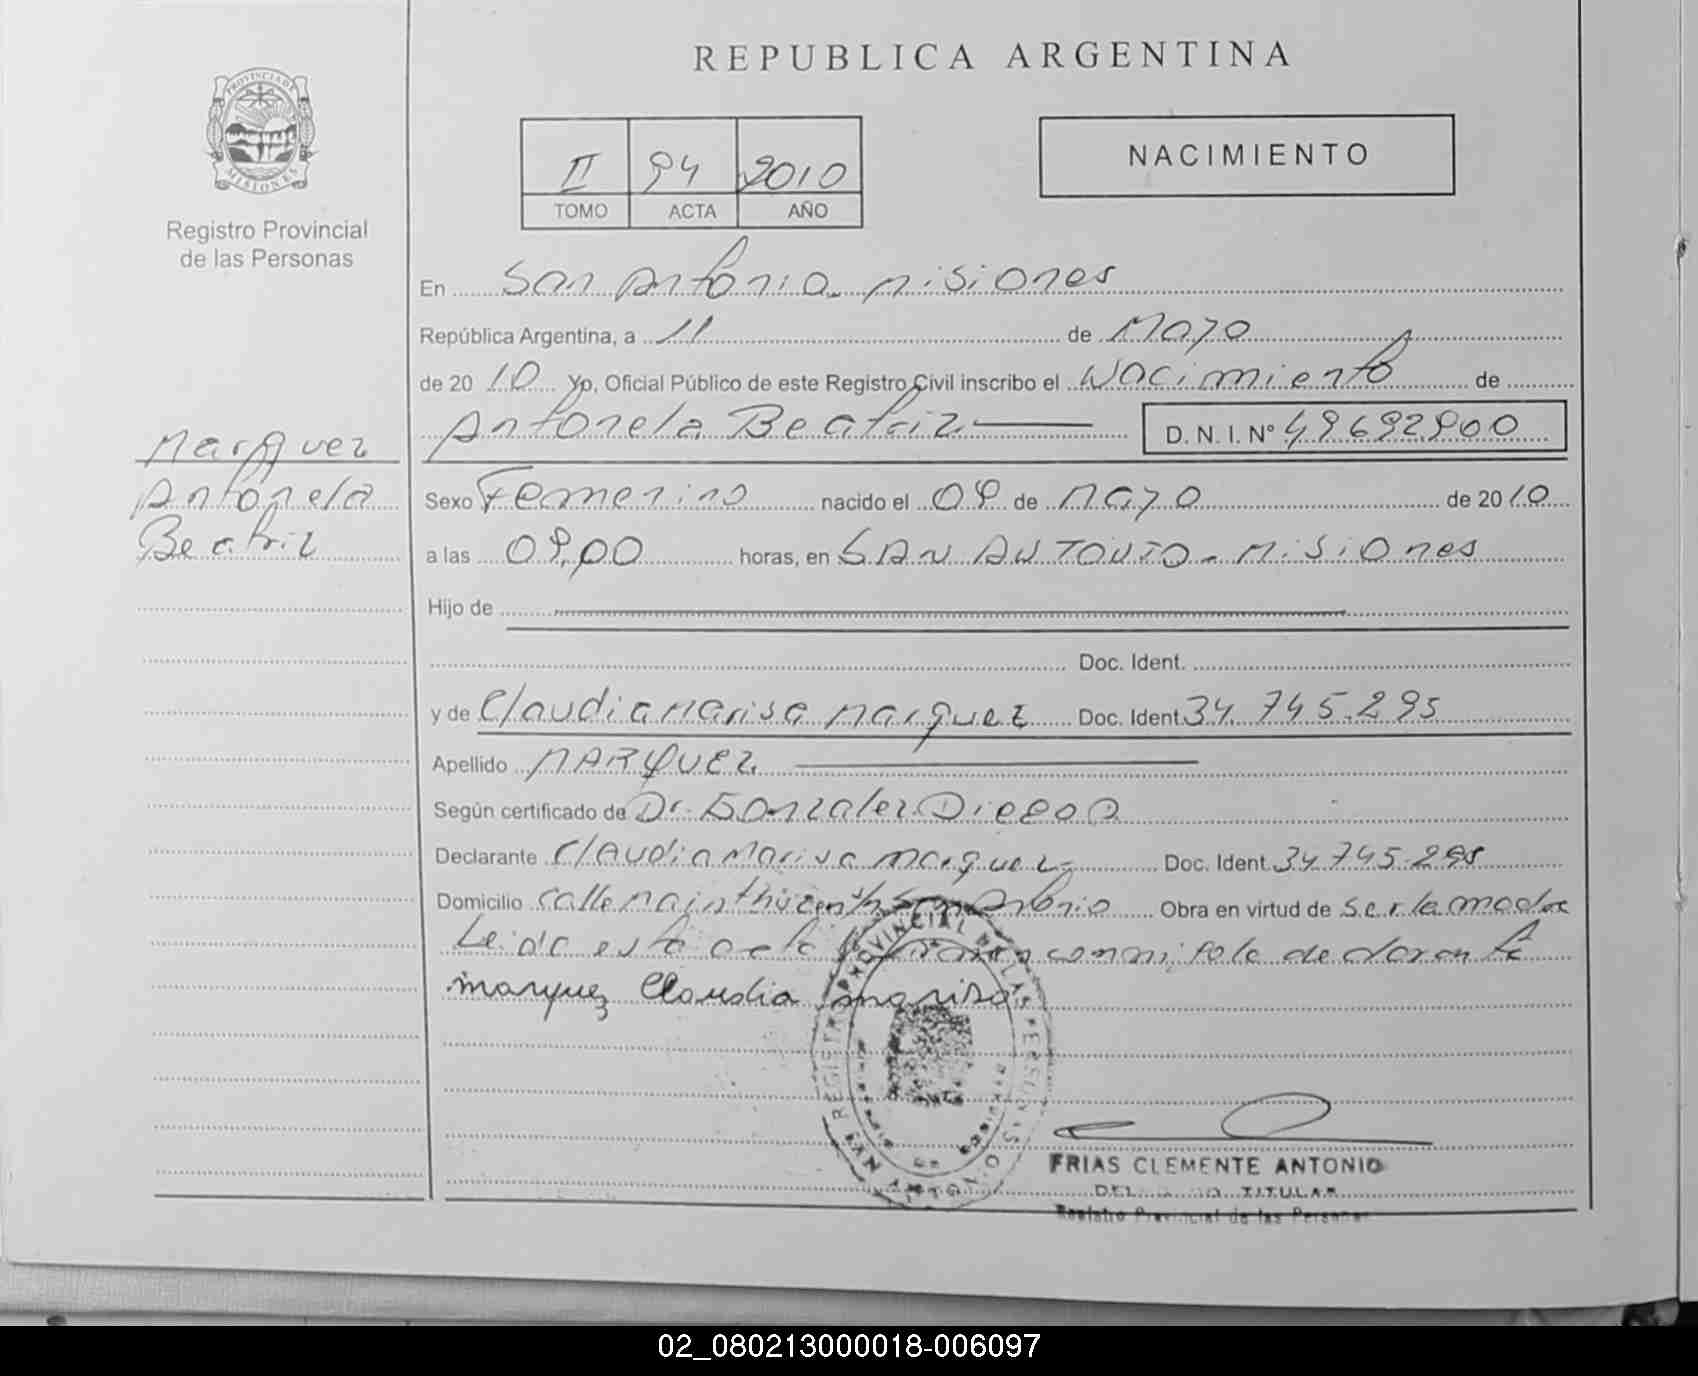 REPUBLICA ARGENTINA
PROVINCIA DE
MISIONES
Registro Provincial
de las Personas
II 94 2010
TOMO ACTA AÑO
NACIMIENTO
En San Antonio. Misiones
República Argentina, a 11 de Mayo
de 2010 Yo, Oficial Público de este Registro Civil inscribo el Nacimiento de
Antonela Beatriz D. N. I. Nº
Marquez
Antonela
Beatriz
Sexo Femenino nacido el 09 de Mayo de 2010
a las 09,00 horas, en SAN ANTONIO - Misiones
Hijo de
Doc. Ident.
y de Claudia Marisa Marquez Doc. Ident. 34.745.295
Apellido MARQUEZ
Según certificado de Dr. Gonzalez Diego D
Declarante Claudia Marisa Marquez - Doc. Ident. 34.745.295
Domicilio calle San Antonio Obra en virtud de ser la madre
Leida esta acta la firma conmigo la declarante
Marquez Claudia Marisa
REGISTRO PROVINCIAL DE LAS PERSONAS
FRIAS CLEMENTE ANTONIO
TITULAR
Registro Provincial de las Personas
02_080213000018-006097